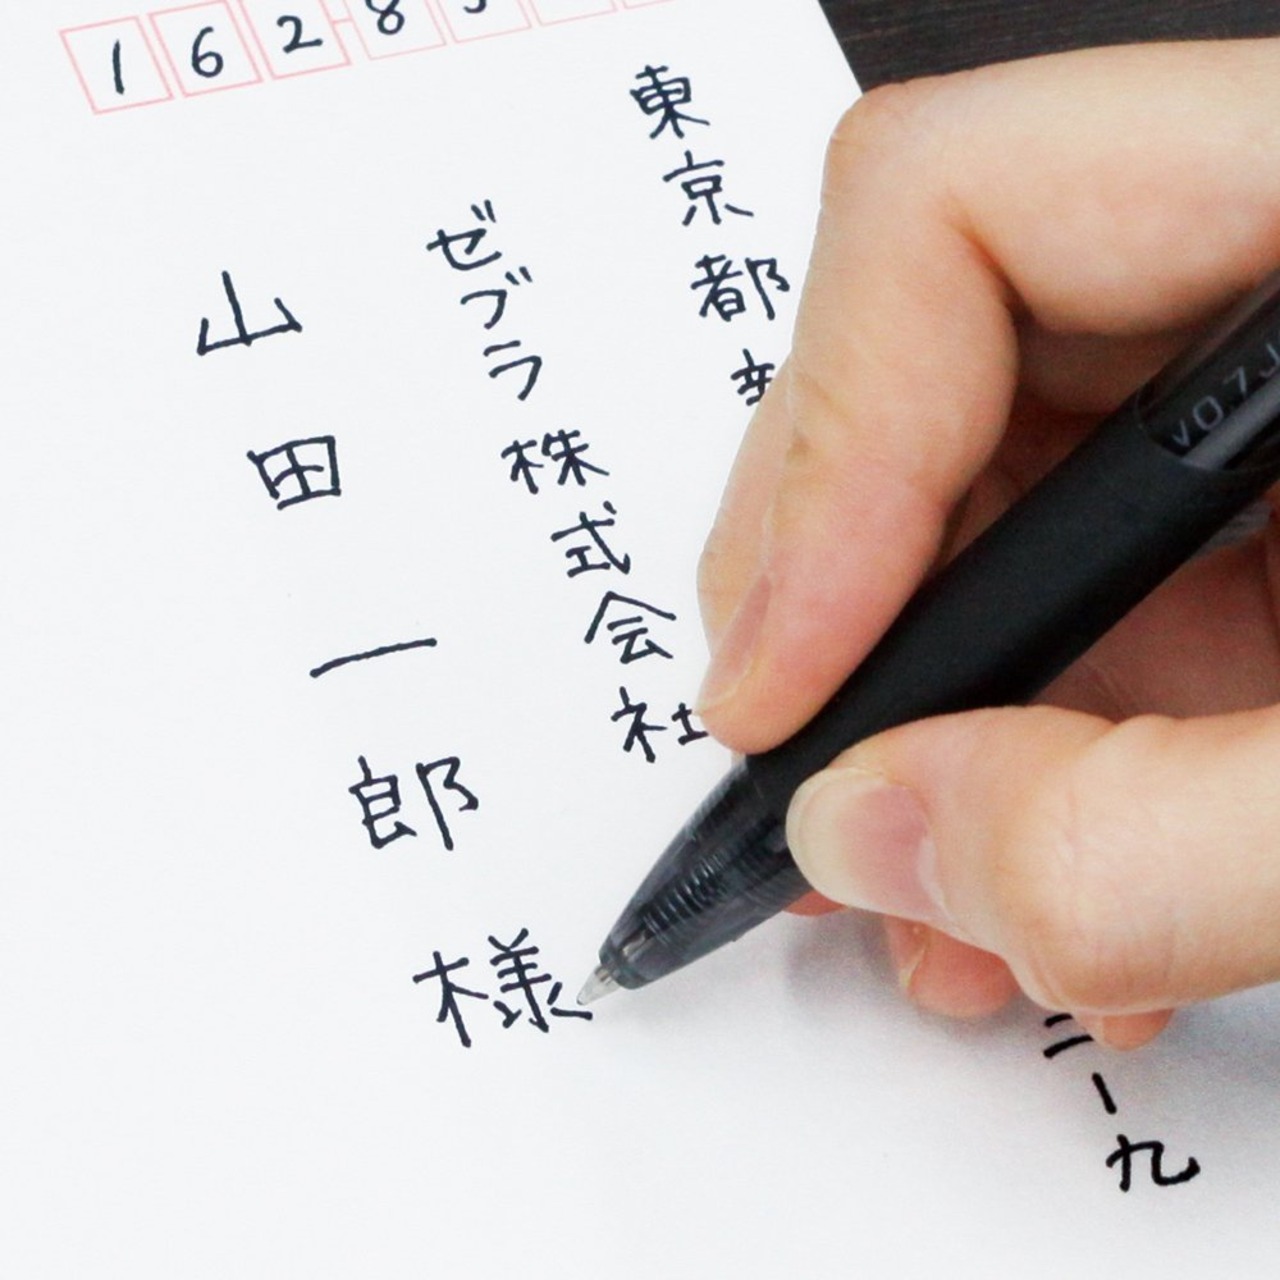 162-8
東京都
二ー九
ゼブラ株式会社
山田一郎様